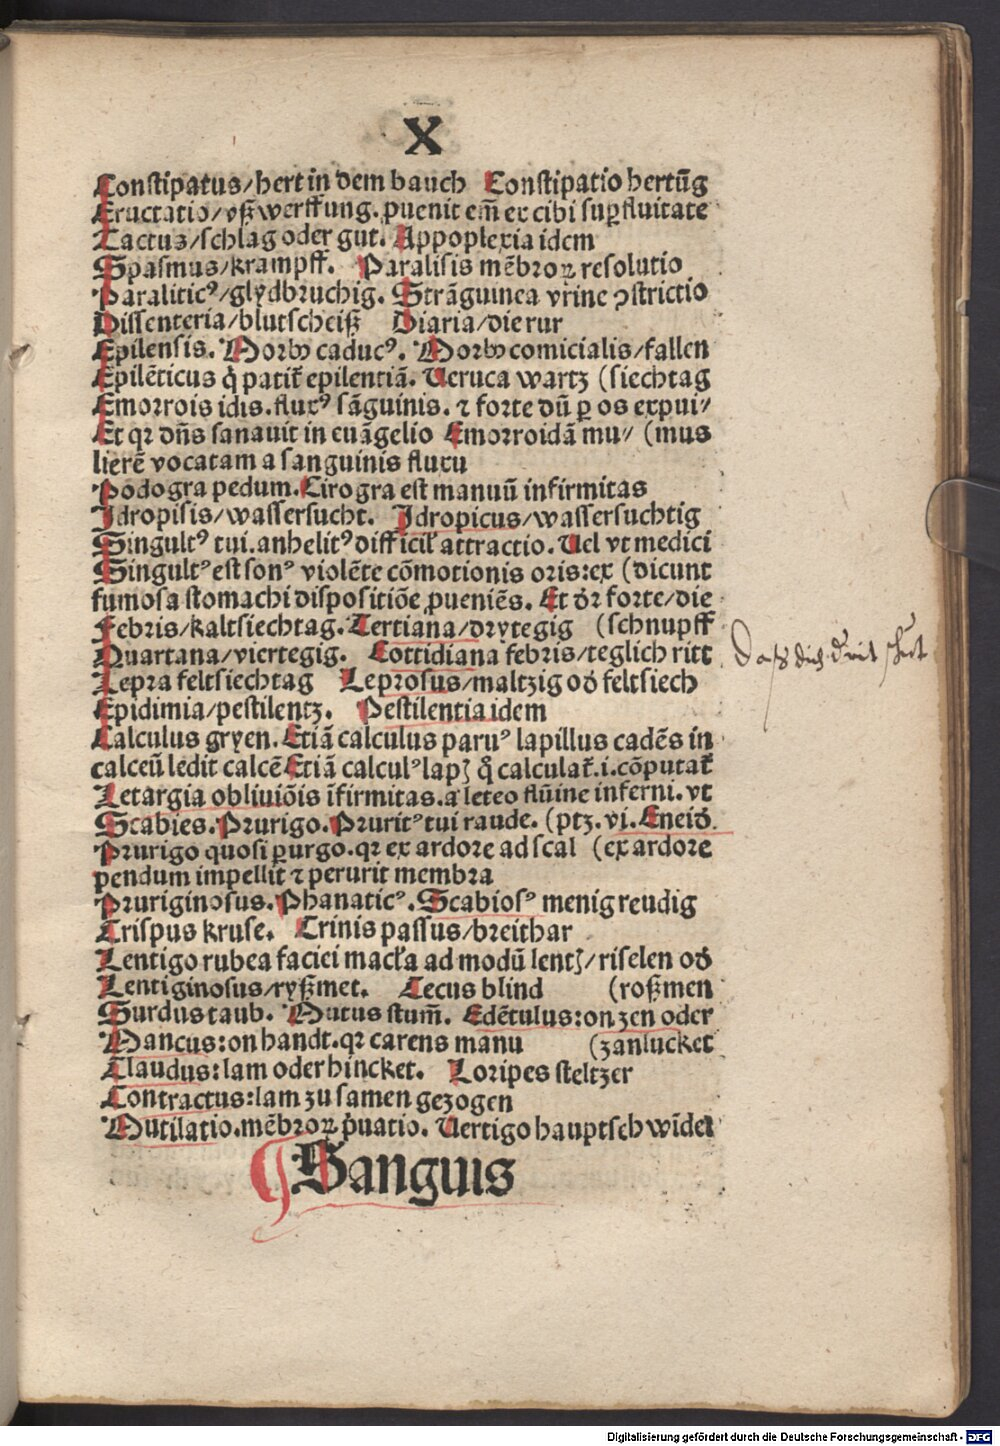 X
Constipatus/hert in dem bauch Constipatio hertũg
Eructatio/vß werffung. ꝓuenit em̃ ex cibi suꝑfluitate
Tactus/schlag oder gut. Appoplexia idem
Spasmus/krampff. Paralisis mẽbroꝝ resolutio
Paraliticꝰ/glydbruchig. Strãguinea vrine ꝯstrictio
Dissenteria/blutscheiß Diaria/die rur
Epilensis. Morbꝰ caducꝰ. Morbꝰ comicialis/fallen
Epilẽticus q̇ patit̃ epilentiã. Veruca wartz (siechtag
Emorrois idis. fluxꝰ sãguinis. ⁊ forte dũ ꝑ os expui/
Et qꝛ dñs sanauit in euãgelio Emorroidã mu// (mus
lierẽ vocatam a sanguinis fluxu
Podogra pedum. Cirogra est manuũ infirmitas
Idropisis/wassersucht. Idropicus/wassersuchtig
Singultꝰ tui. anhelitꝰ difficil̃ attractio. Uel vt medici
Singultꝰ est sonꝰ violẽte cõmotionis oris: ex (dicunt
fumosa stomachi dispositiõe ꝓueniẽs. Et dr̃ forte/die
Febris/kaltsiechtag. Tertiana/drytegig (schnupff
Quartana/viertegig. Cottidiana febris/teglich ritt
Lepra feltsiechtag Leprosus/maltzig od̃ feltsiech
Epidimia/pestilentz. Pestilentia idem
Calculus gryen. Etiã calculus paruꝰ lapillus cadẽs in
calceũ ledit calcẽ Etiã calculꝰ lapꝫ q̃ calculat̃. i. cõputat̃
Letargia obliuiõis ĩfirmitas. a leteo flũine inferni. vt
Scabies. Prurigo. Pruritꝰ tui raude. (ptꝫ. vi. Eneid̃.
Prurigo quosi ꝑurgo. qꝛ ex ardore ad scal (ex ardore
pendum impellit ⁊ perurit membra
Pruriginosus. Phanaticꝰ. Scabiosꝰ menig reudig
Crispus kruse. Crinis passus/breithar
Lentigo rubea faciei macl̃a ad modũ lentꝫ/riselen od̃
Lentiginosus/ryßmet. Cecus blind (roßmen
Surdus taub. Mutus stum̃. Edẽtulus: on zen oder
Mancus: on handt. qꝛ carens manu (zanlucket
Claudus: lam oder hincket. Loripes steltzer
Contractus: lam zu samen gezogen
Mutilatio. mẽbroꝝ p̃uatio. Vertigo hauptschwĩdel
Sanguis
Digitalisierung gefördert durch die Deutsche Forschungsgemeinschaft - DFG